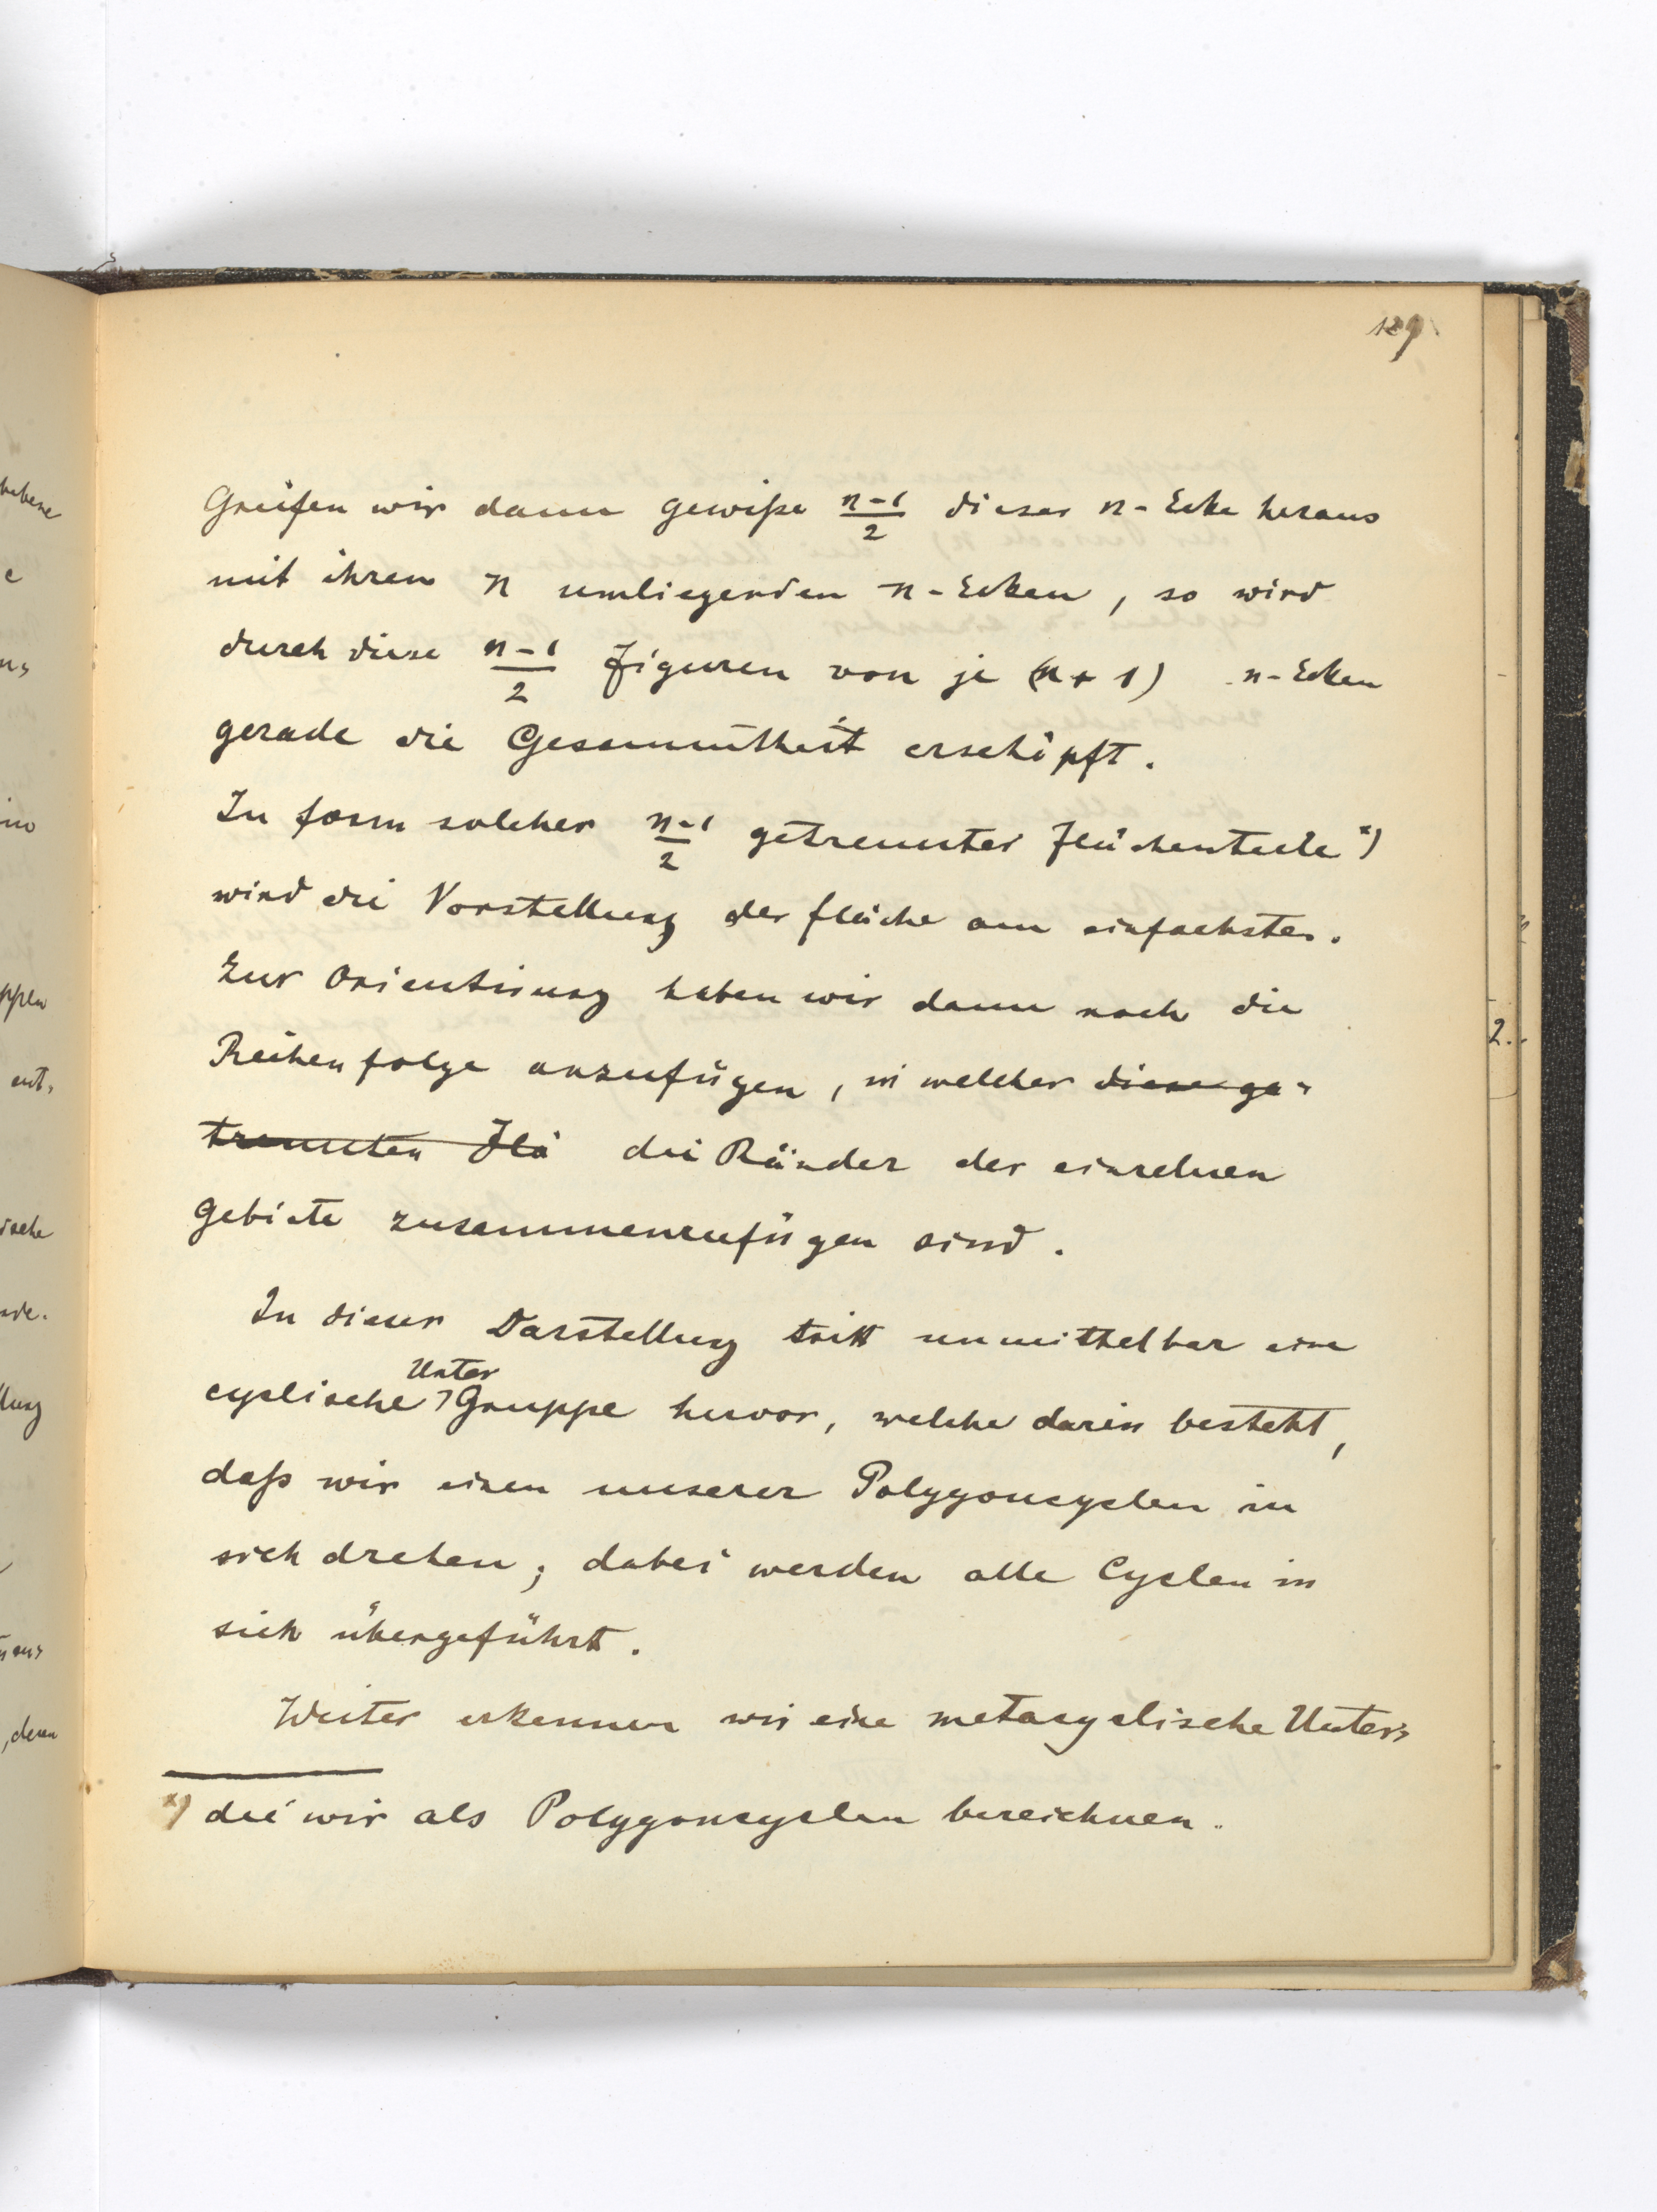 129
Greifen wir dann gewiße n-1/2 dieser n-Ecke heraus
mit ihren n umliegenden n-Ecken, so wird
durch diese n-1/2 Figuren von je (n+1) n-Ecken
gerade die Gesammtheit erschöpft.
In form solcher n-1/2 getrennter Flächenteile *)
wird die Vorstellung der fläche am einfachsten.
Zur Orientirung haben wir dann noch die
Reihenfolge anzufügen, in welcher diese ge-
trennten Flä die Ränder der einzelnen
Gebiete zusammenzufügen sind.
In dieser Darstellung tritt unmittelbar eine
Unter
cyclische Gruppe hervor, welche darin besteht,
daß wir einen unserer Polygoncyclen in
sich drehen; dabei werden alle Cyclen in
sich übergeführt.
Weiter erkennen wir eine metacyclische Unter-
*) die wir als Polygoncyclen bezeichnen.
habene
e
ppen
ent-
ische
llung
, deren
2.